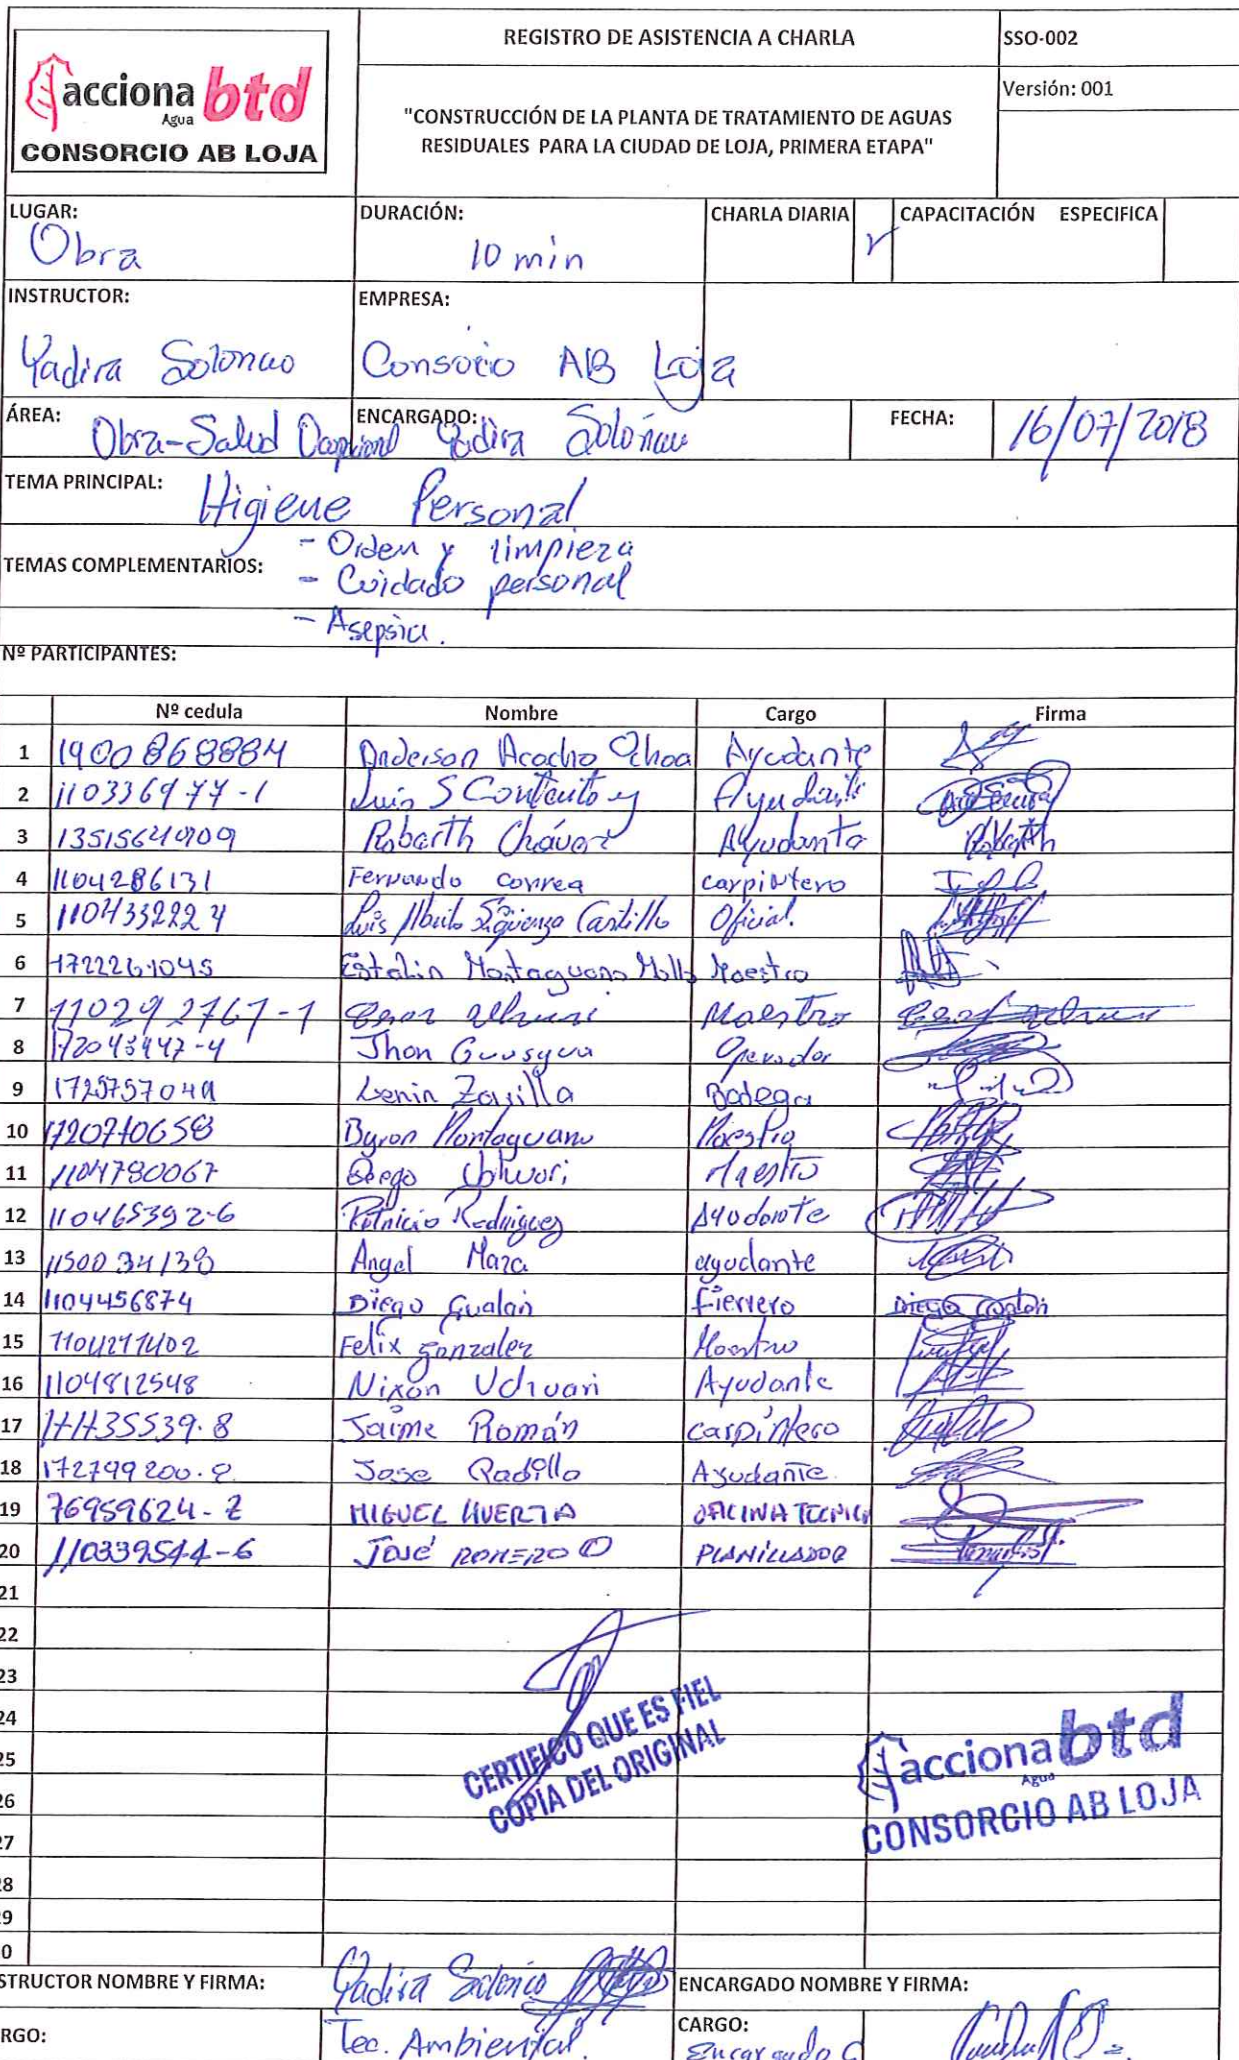 acciona btd
Agua
CONSORCIO AB LOJA
REGISTRO DE ASISTENCIA A CHARLA
SSO-002
"CONSTRUCCIÓN DE LA PLANTA DE TRATAMIENTO DE AGUAS
RESIDUALES PARA LA CIUDAD DE LOJA, PRIMERA ETAPA"
Versión: 001
LUGAR: Obra
DURACIÓN: 10 min
CHARLA DIARIA
CAPACITACIÓN ESPECIFICA
INSTRUCTOR: Yadira
EMPRESA: Consorcio AB Loja
ÁREA: Obra-Salud
ENCARGADO: Yadira
FECHA: 16/07/2018
TEMA PRINCIPAL: Higiene Personal
TEMAS COMPLEMENTARIOS: - Orden y limpieza
- Cuidado personal
- Asepsia.
Nº PARTICIPANTES:
Nº cedula Nombre Cargo Firma
1 1900868884 Anderson Ochoa Ayudante
2 110336977-1 Luis S Contento y Ayudante
3 Robarth Chávez Ayudante
4 1104286131 Fernando Correa carpintero
5 110433222 4 Luis Castillo Oficial.
6 1722261045 Estalin Maestro
7 110292767-1 Maestro
8 Jhon Operador
9 Lenin Bodega
10 1720710658 Byron Maestro
11 1104780067 Diego Maestro
12 110465392-6 Patricio Rodriguez Ayudante
13 1150034138 Angel Maza ayudante
14 1104456874 Diego Gualan fierrero Diego Gualan
15 Felix Gonzalez Maestro
16 1104812548 Nixon Uchuari Ayudante
17 Jaime Román carpintero
18 Jose Ayudante
19 76959624-2 MIGUEL HUERTA OFICINA TECNICA
20 110339544-6 José ROMERO O PLANILLADOR
21
22
23
24
25
26
27
28
29
0
CERTIFICO QUE ES FIEL
COPIA DEL ORIGINAL
acciona btd
Agua
CONSORCIO AB LOJA
STRUCTOR NOMBRE Y FIRMA: Yadira
ENCARGADO NOMBRE Y FIRMA:
RGO: Tec. Ambiental.
CARGO: Encargado